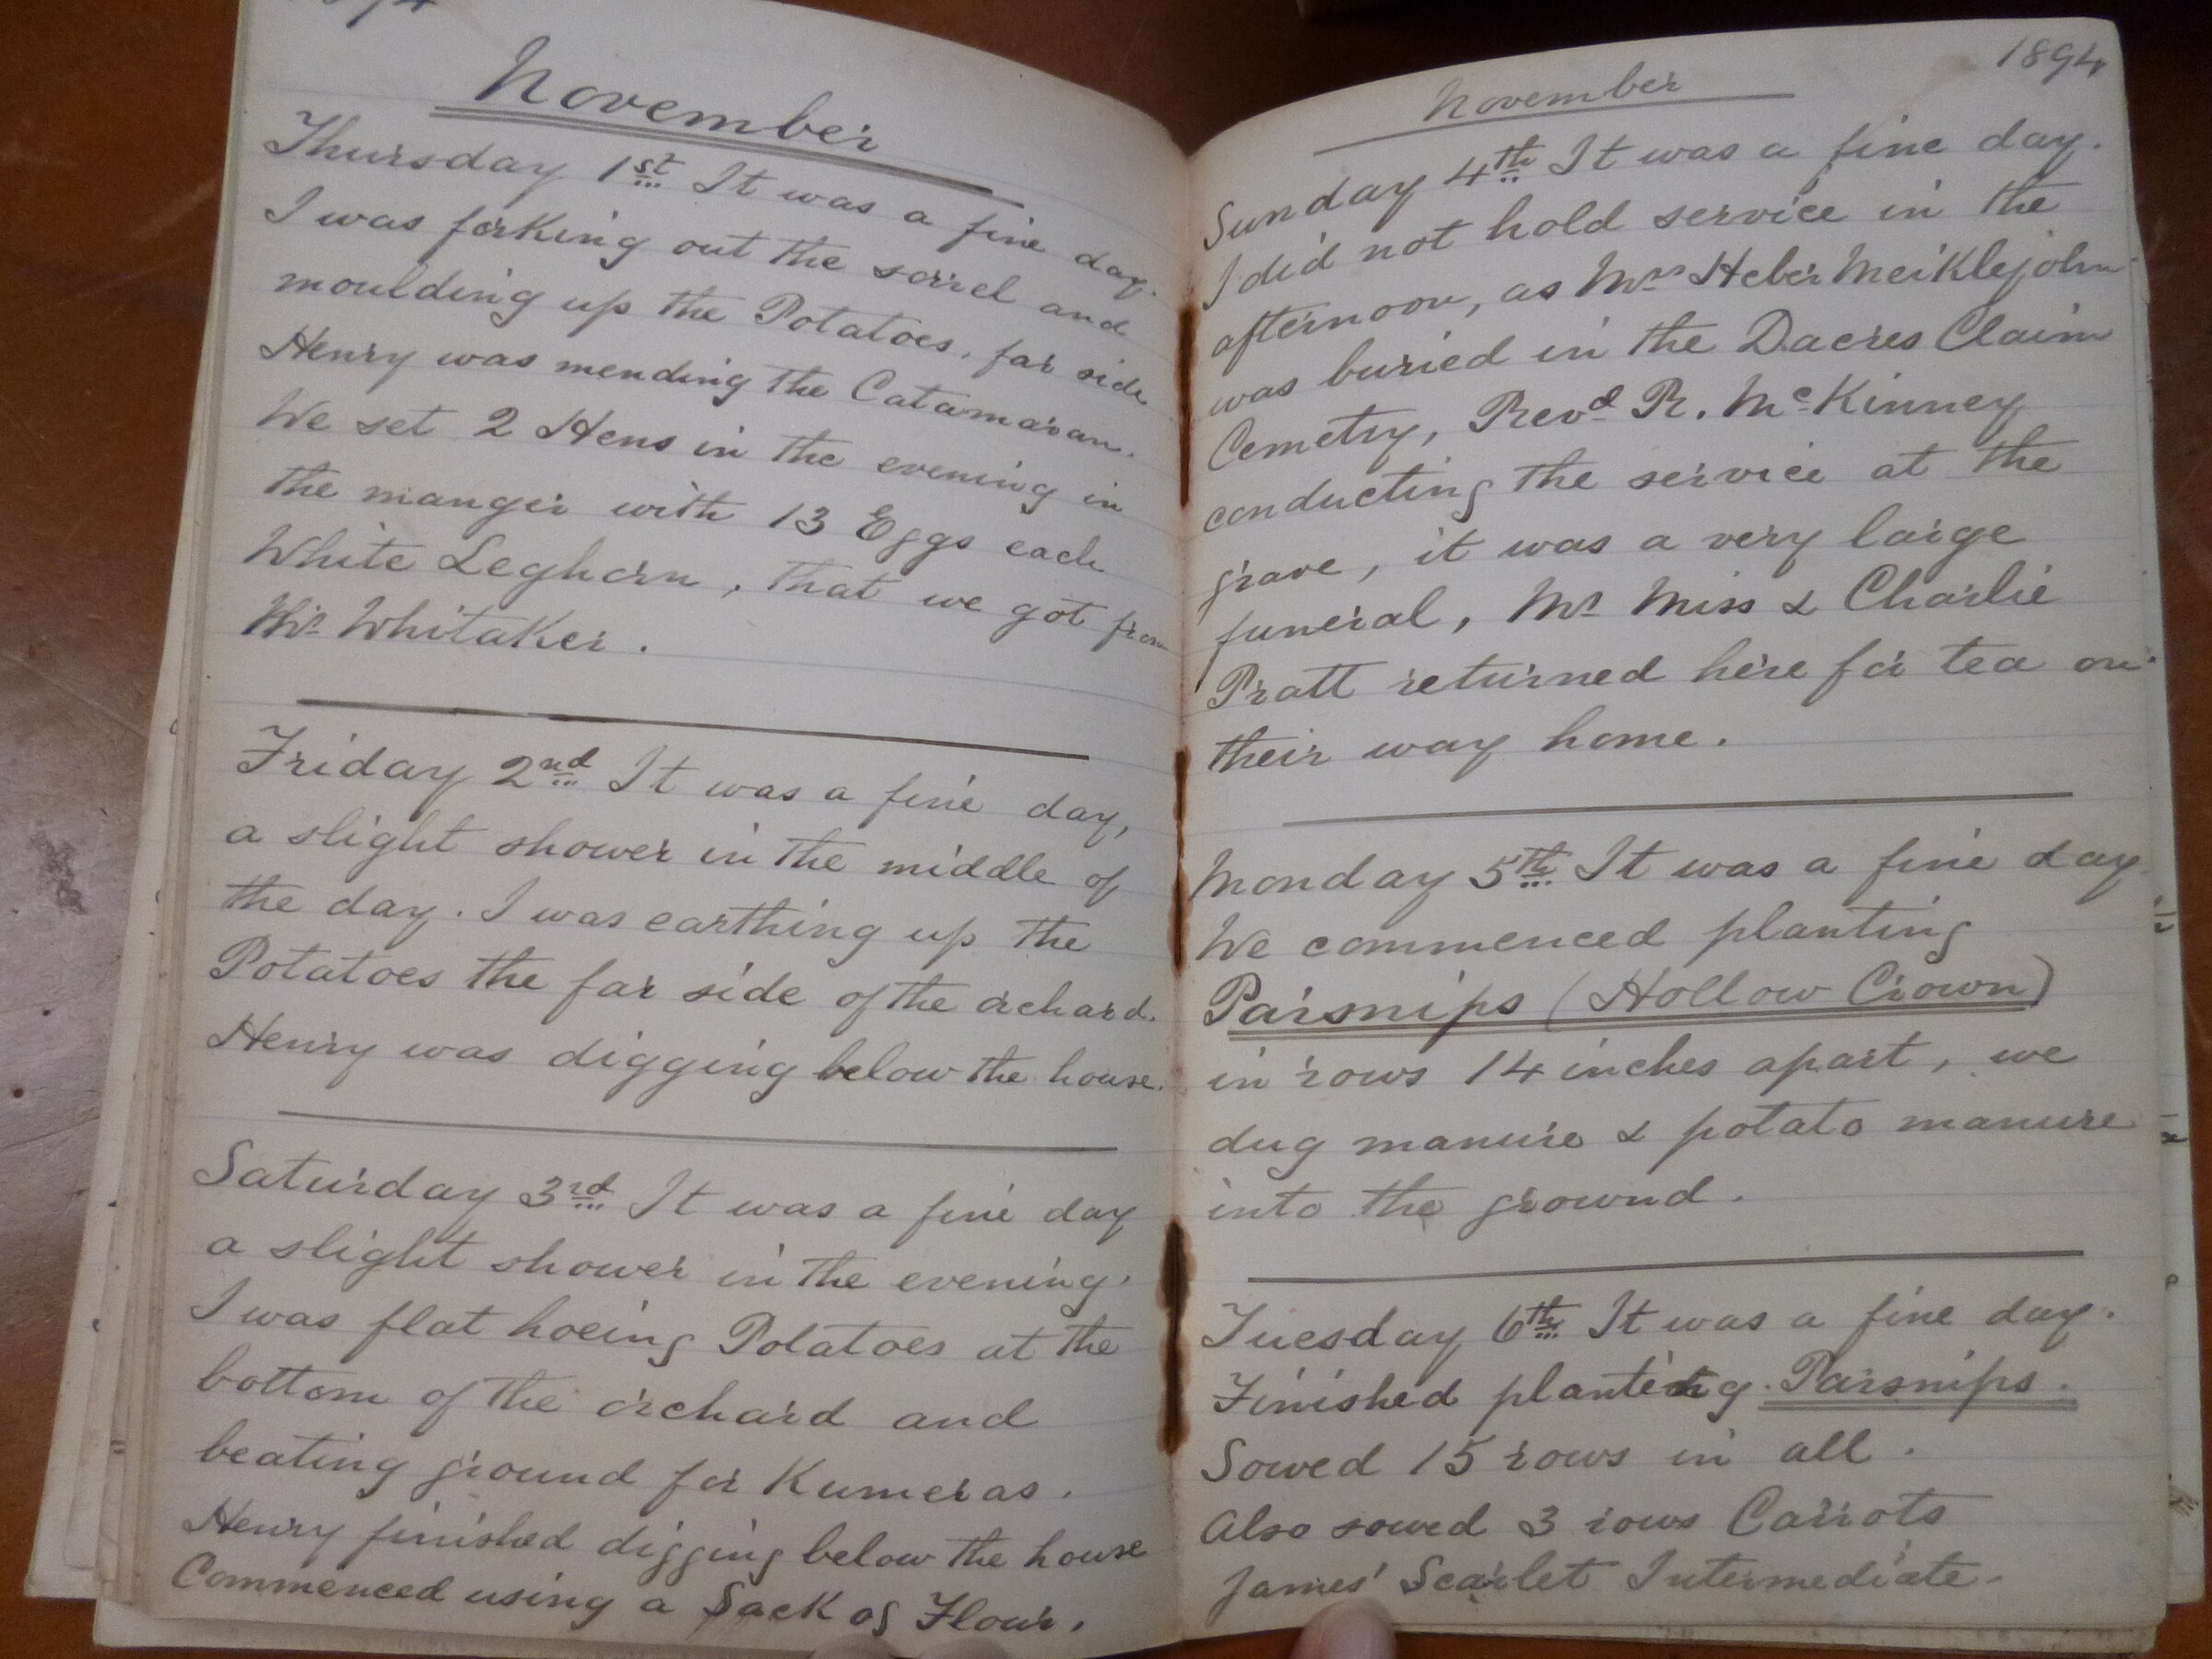 November
Thursday 1st It was a fine day.
I was forking out the sorrel and
moulding up the Potatoes, far side
Henry was mending the Catamaran.
We set 2 Hens in the evening in
the manger with 13 Eggs each
White Leghorn, that we got from
Mr Whitaker.
Friday 2nd It was a fine day,
a slight shower in the middle of
the day. I was earthing up the
Potatoes the far side of the orchard.
Henry was digging below the house.
Saturday 3rd It was a fine day
a slight shower in the evening.
I was flat hoeing Potatoes at the
bottom of the orchard and
beating ground for Kumeras.
Henry finished digging below the house
Commenced using a Sack of Flour.
1894
November
Sunday 4th It was a fine day.
I did not hold service in the
afternoon, as Mrs Heber Meiklejohn
was buried in the Dacres Claim
Cemetry, Revd R. McKinney
conducting the service at the
grave, it was a very large
funeral, Mr Miss & Charlie
Pratt returned here for tea on
their way home.
Monday 5th It was a fine day
We commenced planting
Parsnips (Hollow Crown)
in rows 14 inches apart, we
dug manure & potato manure
into the ground.
Tuesday 6th It was a fine day.
Finished planting Parsnips.
Sowed 15 rows in all.
Also sowed 3 rows Carrots
James' Scarlet Intermediate.